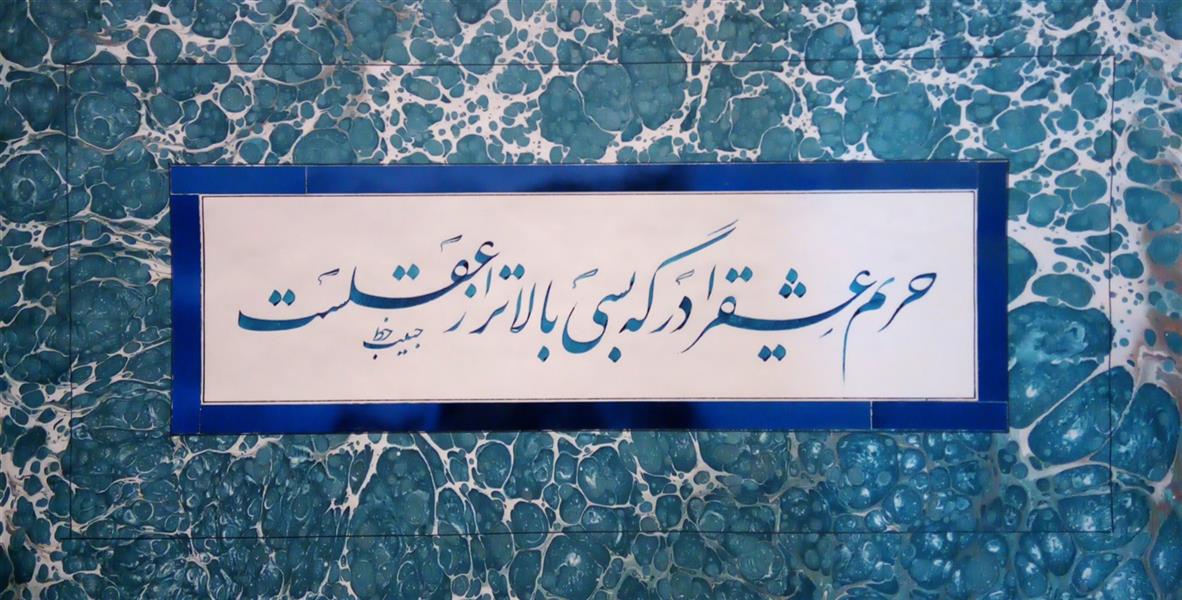 حریم عشق را درگه بسی بالاتر از عقلست
حبیب خط